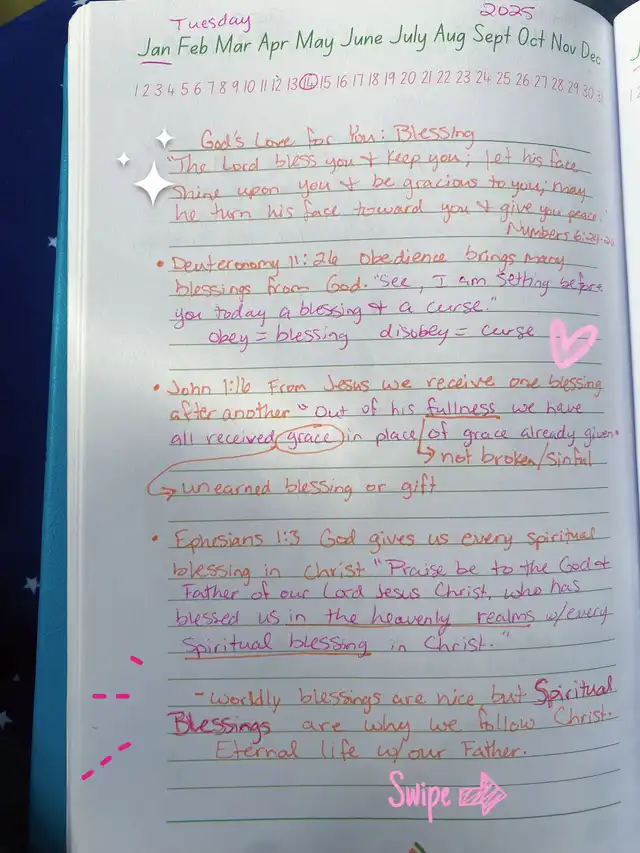 Tuesday 2025
Jan Feb Mar Apr May June July Aug Sept Oct Nov Dec
1 2 3 4 5 6 7 8 9 10 11 12 13 14 15 16 17 18 19 20 21 22 23 24 25 26 27 28 29 30 31
God's Love for You: Blessing
"The Lord bless you & keep you; let his face
shine upon you & be gracious to you; may
he turn his face toward you & give you peace."
Numbers 6:24-26
• Deuteronomy 11:26 Obedience brings many
blessings from God. "See, I am setting before
you today a blessing & a curse."
obey = blessing disobey = curse
• John 1:16 From Jesus we receive one blessing
after another "Out of his fullness we have
all received grace in place of grace already given.
→ not broken/sinful
→ unearned blessing or gift
• Ephesians 1:3 God gives us every spiritual
blessing in Christ "Praise be to the God &
Father of our Lord Jesus Christ, who has
blessed us in the heavenly realms w/every
Spiritual blessing in Christ."
- worldly blessings are nice but Spiritual
Blessings are why we follow Christ.
Eternal life w/our Father.
Swipe